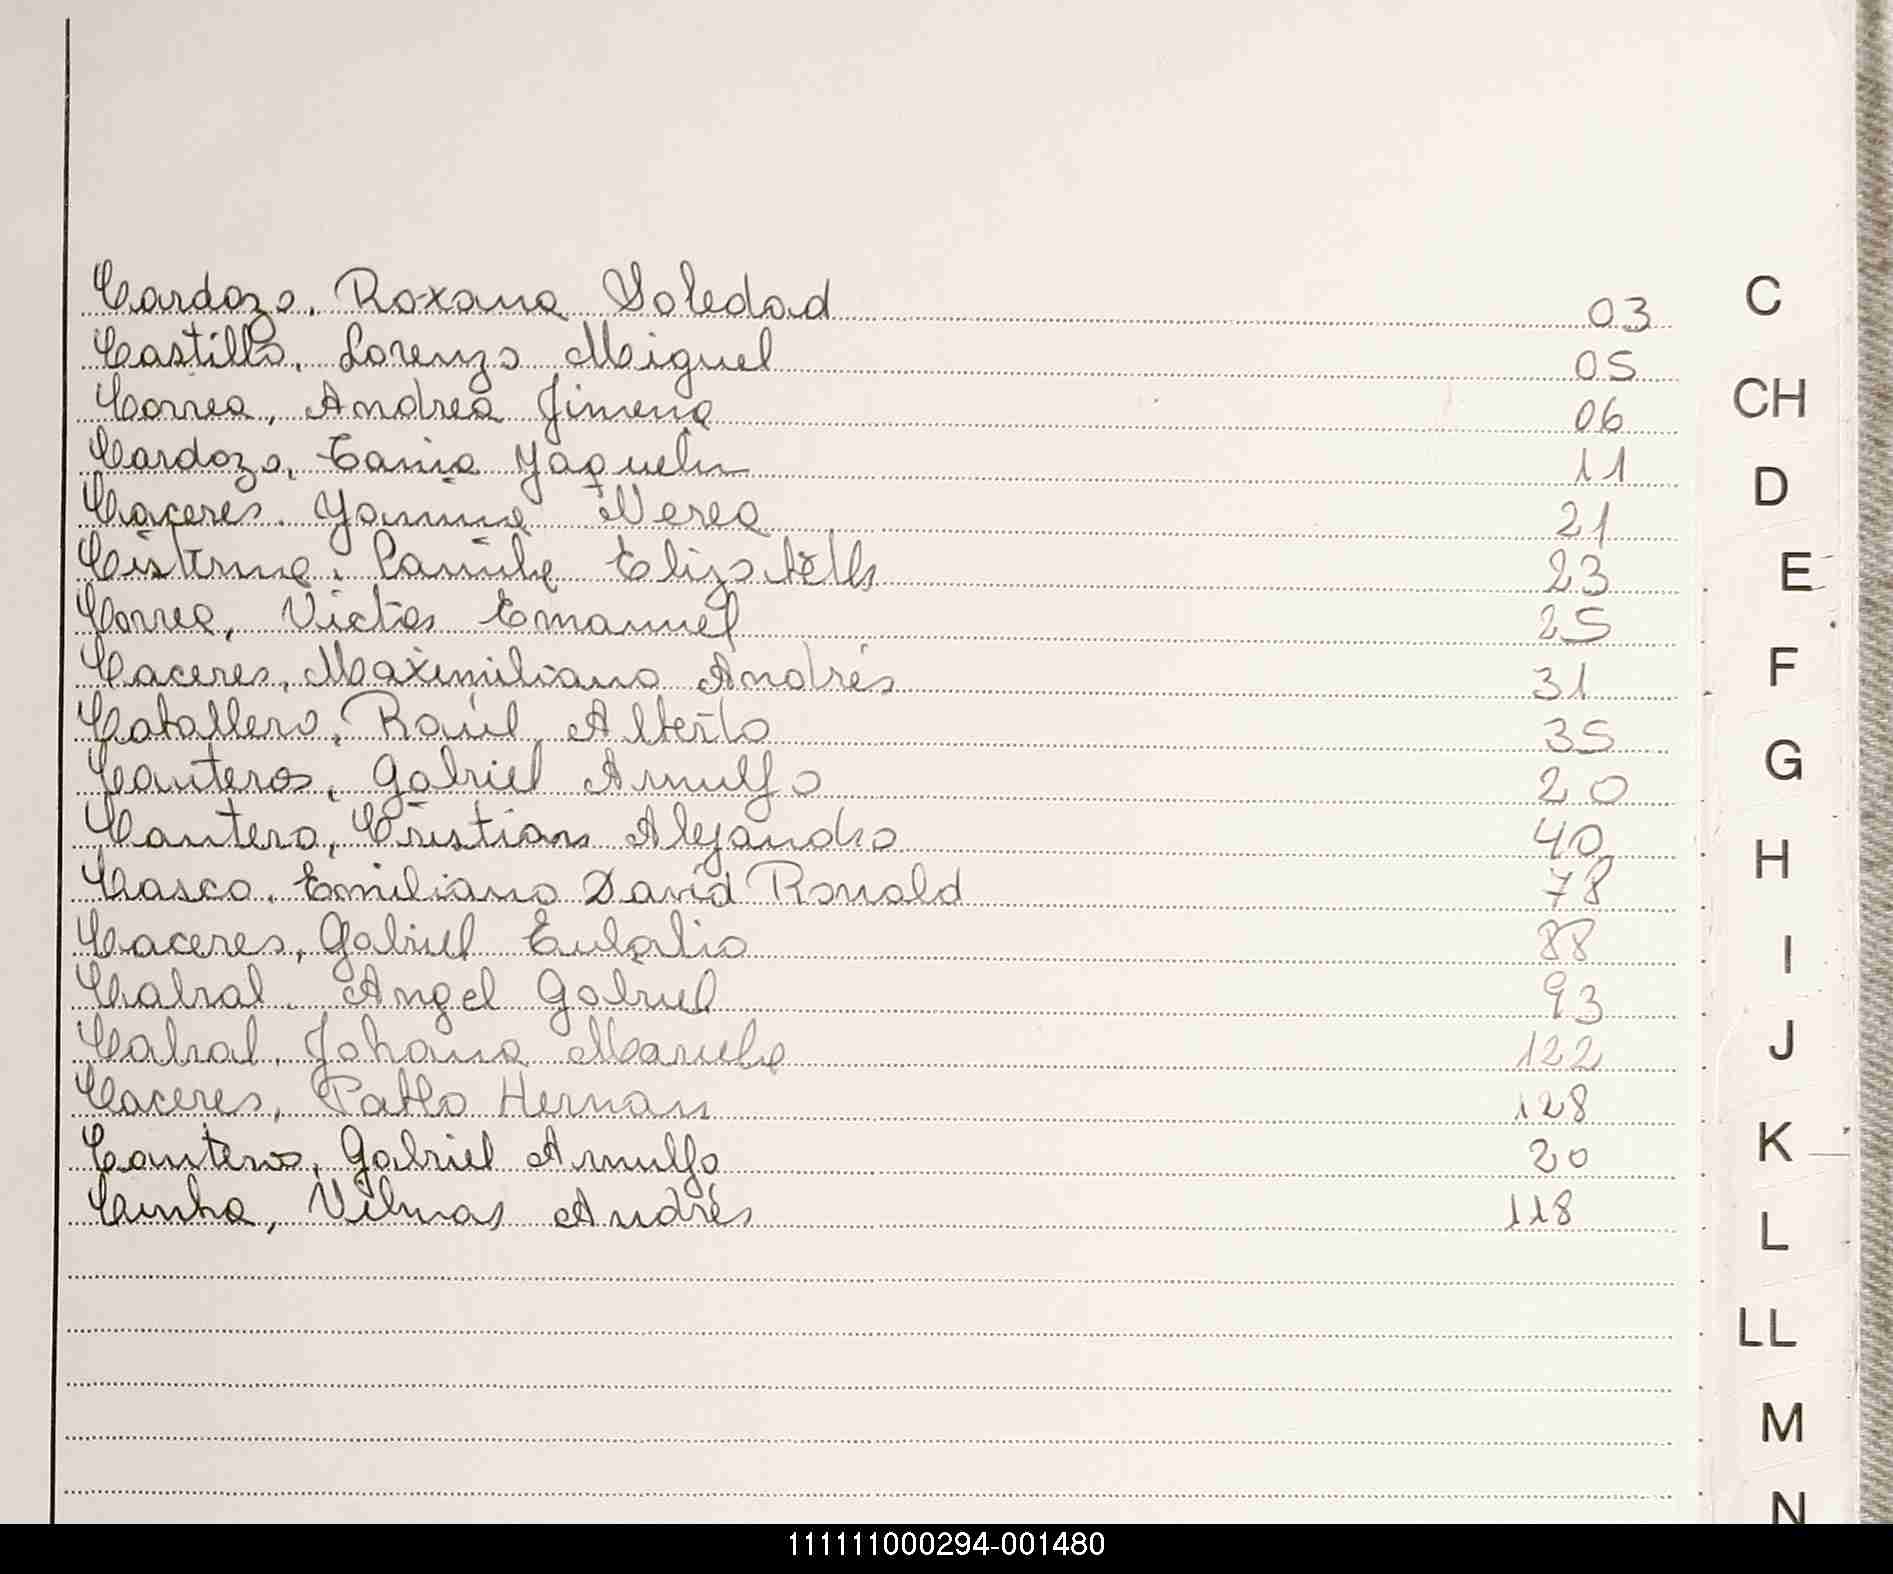 Cardozo, Roxana Soledad 03
Castillo, Lorenzo Miguel 05
Correa, Andrea Jimena 06
Cardozo, Tania Yaquelin 11
Caceres. Yanina Nerea 21
Cisterna, Pamela Elizabeth 23
Correa, Victor Emanuel 25
Caceres, Maximiliano Andrés 31
Caballero, Raúl Alberto 35
Canteros, Gabriel Arnulfo 20
Cantero, Cristian Alejandro 40
Casco. Emiliano David Ronald 78
Caceres, Gabriel Eulalio 88
Cabral. Angel Gabriel 93
Cabral, Johana Mariela 122
Caceres, Pablo Hernan 128
Canteros, Gabriel Arnulfo 20
Cunha, Vilmar Andrés 118
C
CH
D
E
F
G
H
I
J
K
L
LL
M
N
111111000294-001480